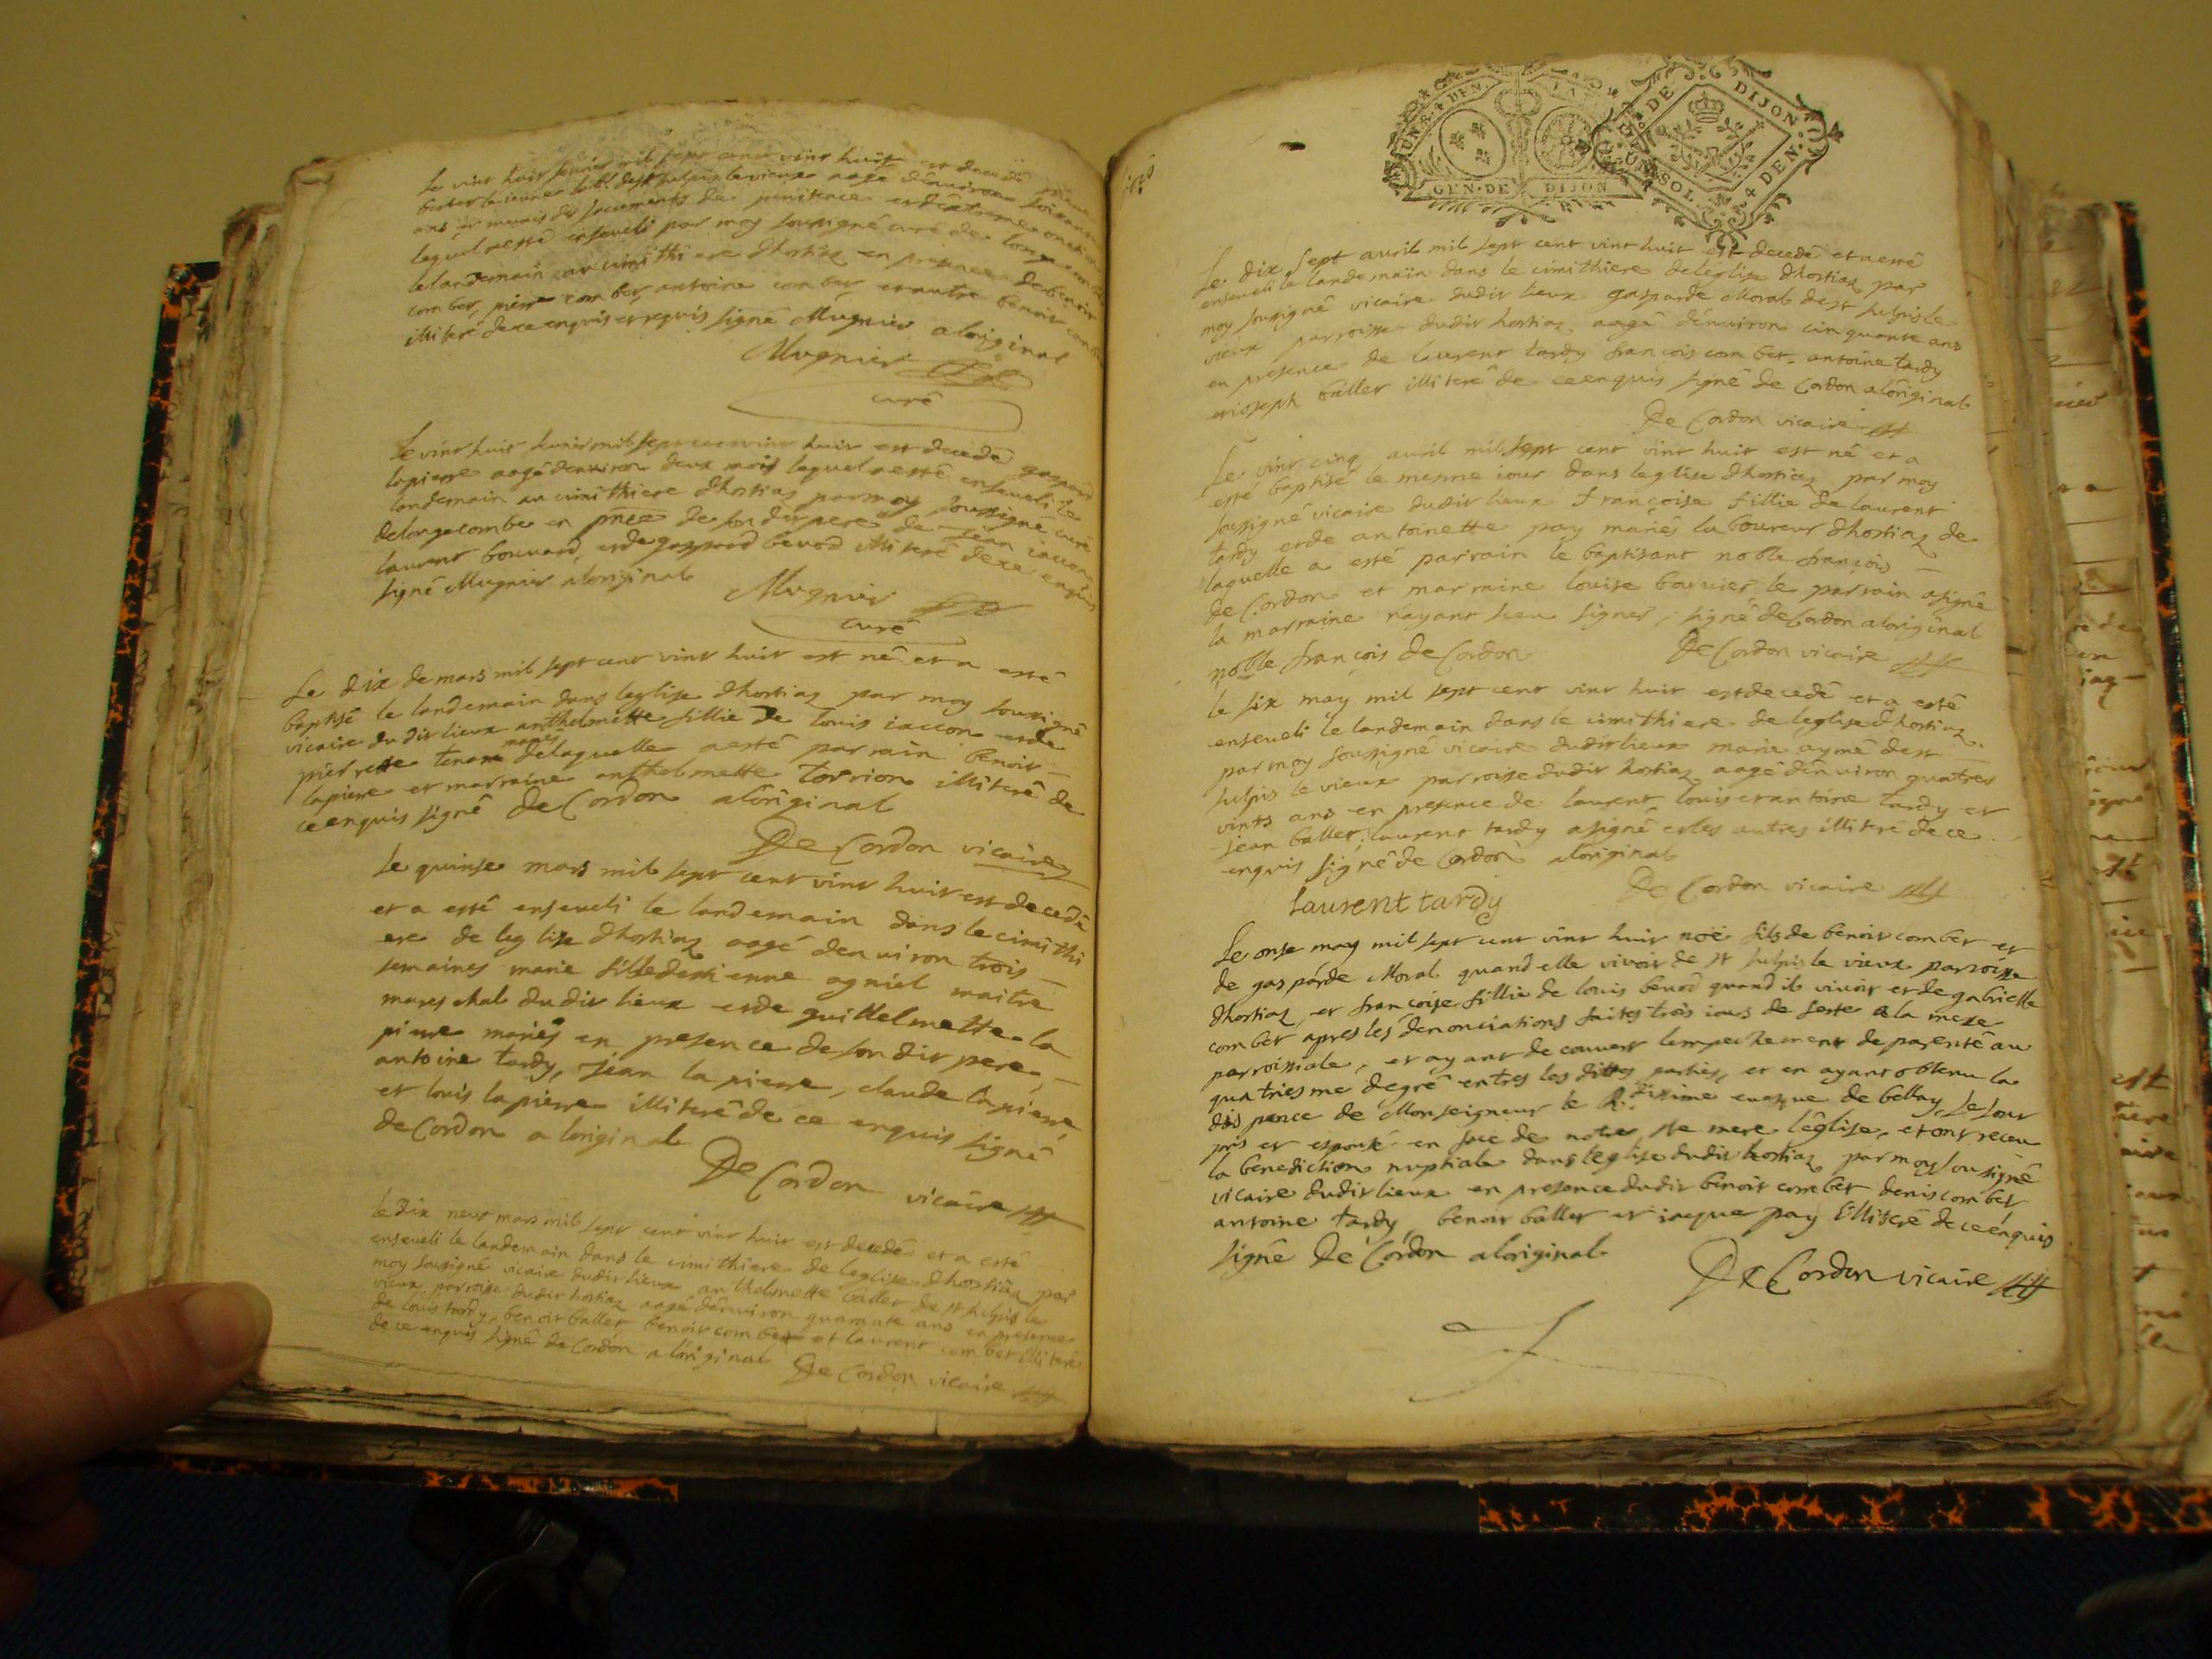 Le vint huit feurier mil sept cent vint huit est decedé
comber le ieune dest sulpis le vieux aage denuiron soixante
ans et munis des sacuments de penitence et dextreme onction
lequel a esté enseueli par moy soussigné curé de longecombe
le landemain au cimithiere dhostiaz en presence de benoit
comber, pierre comber, antoine comber, et autre benoit comber
illiteré de ce enquis et requis signé Mugnier a loriginal
Mugnier
curé
Le vint huit feurier mil sept cent vint huit est decedé gaspard
lapierre aagé denuiron deux mois lequel a esté enseueli le
landemain au cimithiere dhostiaz par moy soussigné curé
delongecombe en pñce de son dit pere de Jean iaccon
laurent bouuard, et de gaspard benod illiteré de ce enquis
signé Mugnier a loriginal
Mugnier
curé
Le dix de mars mil sept cent vint huit est né et a esté
baptisé le landemain dans leglise dhostiaz par moy sousigné
vicaire du dit lieux anthelmette fillie de louis iaccon et de
pierrette tenant mariés delaquelle a esté parrain benoit
lapiere et marraine anthelmette torrion illiteré de
ce enquis signé de Cordon a loriginal
De Cordon vicaire
le quinse mars mil sept cent vint huit est decedé
et a esté enseueli le landemain dans le cimithi
ere de leglise dhostiaz aagé denuiron trois
semaines marie fille destienne agniel maitre
mareschal dudit lieux et de guillelmette la
pierre mariés en presence de son dit pere,
antoine tardy, Jean la pierre, claude lapierre,
et louis la pierre illiteré de ce enquis signé
de Cordon a loriginal
De Cordon vicaire
le dix neuf mars mil sept cent vint huit est decedé et a esté
enseueli le landemain dans le cimithiere de leglise dhostiaz par
moy sousigné vicaire dudit lieux anthelmette ballet de st sulpis le
vieux parroise dudit hostiaz aagé dénuiron quarante ans en presence
de louis tardy, benoit ballet benoit comber et laurent comber illiteré
de ce enquis signé de Cordon a loriginal
De Cordon vicaire
UN·S·4 DEN·
GEN·DE DIJON
G. DE DIJON
UN SOL. 4 DEN.
Le dix sept auril mil sept cent vint huit est decedé et a esté
enseueli le landemain dans le cimithiere de leglise dhostiaz par
moy sousigné vicaire dudit lieux gasparde Moral de st sulpis le
vieux parroisse dudit hostiaz aagé dénuiron cinquante ans
en presence de laurent tardy françois comber, antoine tardy
et ioseph ballet illiteré de ce enquis signé de Cordon a loriginal
De Cordon vicaire
Le vint cinq auril mil sept cent vint huit est né et a
esté baptisé le mesme iour dans leglise dhostiaz par moy
sousigné vicaire dudit lieux françoise fillie de laurent
tardy et de antoinette pay mariés laboureur dhostiaz de
laquelle a esté parrain le baptisant noble françois
de Cordon et marraine louise bouuier le parrain a signé
la marraine n'ayant sceu signer, signé de Cordon a loriginal
noble françois de Cordon
De Cordon vicaire
le six may mil sept cent vint huit est decedé et a esté
enseueli le landemain dans le cimithiere de leglise dhostiaz
par moy sousigné vicaire dudit lieux marie aymé de st
sulpis le vieux parroise dudit hostiaz aagé dénuiron quatres
vints ans en presence de laurent, louis et antoine tardy et
Jean ballet, laurent tardy a signé et les autres illiteré de ce
enquis signé de Cordon a loriginal
De Cordon vicaire
Laurent tardy
Le onse may mil sept cent vint huit noë fils de benoit comber et
de gasparde Moral quand elle vivoit de st sulpis le vieux parroisse
dhostiaz, et françoise fillie de louis benod quand il vivoit et de gabrielle
comber apres les denonciations faites trois iours de feste a la messe
parroissiale, et ayant decouuert lempechement de parenté au
quatriesme degré entres les dittes parties, et en ayant obtenu la
dispence de Monseigneur le R.dissime euesque de bellay, se sont
pris et espousé en face de notre ste mere léglise, et ont receu
la benediction nuptiale dans leglise dudit hostiaz par moy sousigné
vicaire dudit lieux en presence dudit benoit comber denis comber
antoine tardy, benoit ballet et iacque pay illiteré de ce enquis
signé De Cordon a loriginal
De Cordon vicaire